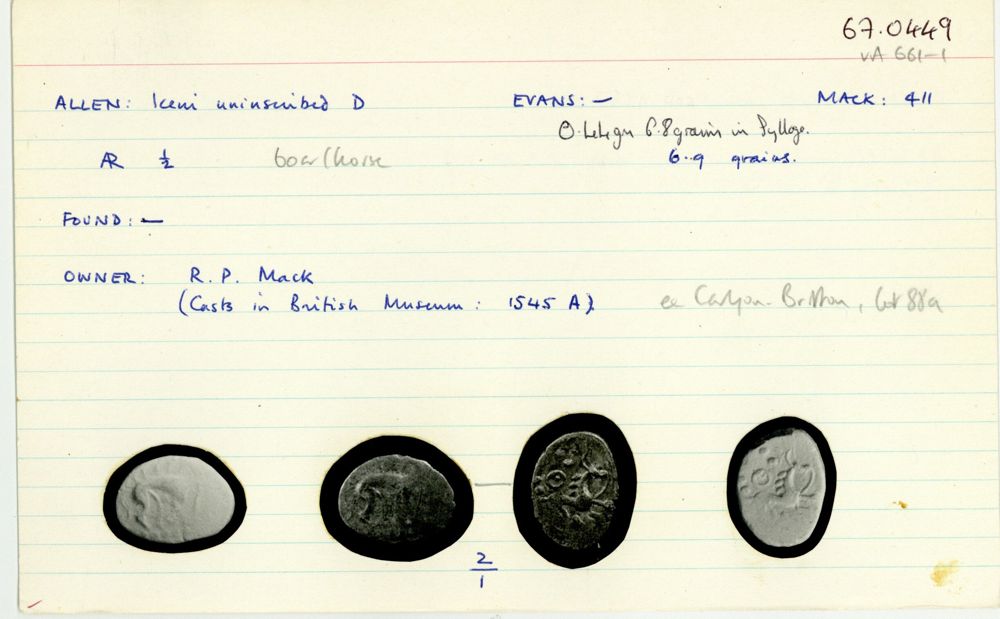 67.0449
VA 661-1
ALLEN: Iceni uninscribed D EVANS: — MACK: 411
6.8 grains in Sylloge.
AR ½ boar/horse 6.9 grains.
FOUND: —
OWNER: R. P. Mack
(Casts in British Museum: 1545 A). ex Carlyon-Britton, lot 88a
2
1